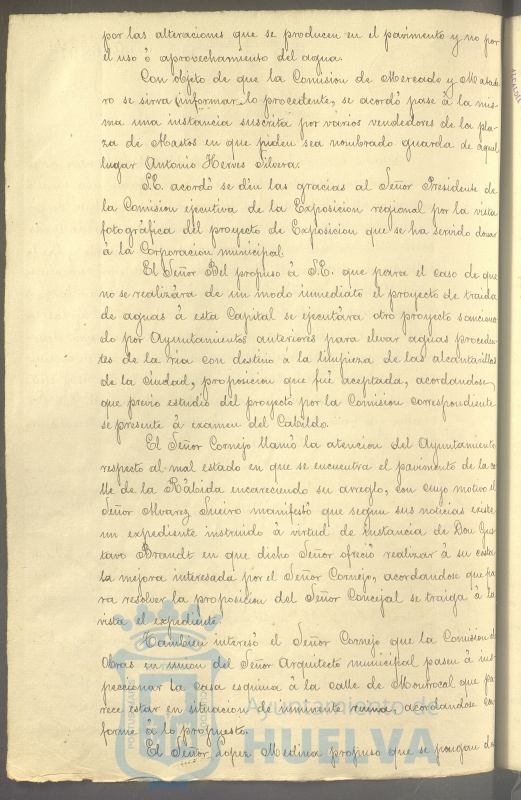 por las alteraciones que se producen en el pavimento y no por
el uso ó aprovechamiento del agua.
Con objeto de que la Comision de Mercado y Matade
ro se sirva informar lo procedente, se acordó pase á la mis
ma una instancia suscrita por varios vendedores de la pla
za de Mastos en que piden sea nombrado guarda de aquel
lugar Antonio Herves Silvera.
S.E. acordó se dén las gracias al Señor Presidente de
la Comision ejecutiva de la Exposicion regional por la vista
fotográfica del proyecto de Exposicion que se ha servido donar
á la Corporacion municipal.
El Señor Bel propuso á S.E. que para el caso de que
no se realizára de un modo inmediato el proyecto de traida
de aguas á esta Capital se ejecutára otro proyecto sanciona
do por Ayuntamientos anteriores para elevar aguas proceden
tes de la ria con destino á la limpieza de las alcantarillas
de la ciudad, proposicion que fué aceptada, acordandose,
que previo estudio del proyecto por la Comision correspondiente
se presente á examen del Cabildo.
El Señor Cornejo llamó la atencion del Ayuntamiento
respecto al mal estado en que se encuentra el pavimento de la ca
lle de la Rábida encareciendo su arreglo, con cuyo motivo el
Señor Alvarez Suero manifestó que segun sus noticias existe
un expediente instruido á virtud de instancia de Don Gus
tavo Brandt en que dicho Señor ofreció realizar á su costa
la mejora interesada por el Señor Cornejo, acordandose que pa
ra resolver la proposicion del Señor Concejal se traiga á la
vista el expediente.
Tambien interesó el Señor Cornejo que la Comision de
Obras en union del Señor Arquitecto municipal pasen á ins
peccionar la casa esquina á la calle de Monrocal que pa
rece estar en situacion de inminente ruina, acordandose con
forme á lo propuesto.
El Señor Lopez Medina propuso que se pongan dos
Ayuntamiento de
HUELVA